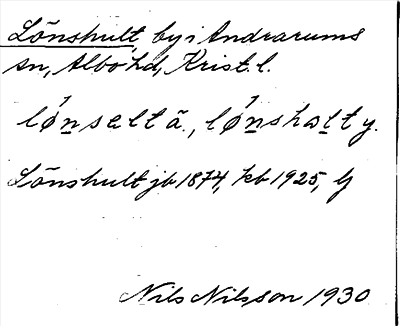 Lönshult, by i Andrarums
sn, Albo hd, Krist. l.
lø̀n̲sal̲t ä., lø̀n̲shal̲t y.
Lönshult jb 1874, kb 1925, G
Nils Nilsson 1930